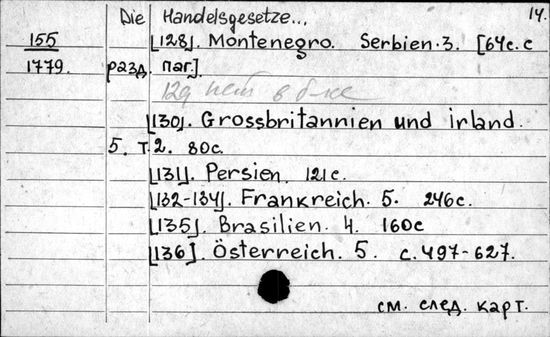 Die Handelsgesetze... 14.
155 [128]. Montenegro. Serbien. 3. [64c. с
1779. разд. паг.].
129 нет в б-ке
[130]. Grossbritannien und irland.
5. т. 2. 80c.
[131]. Persien. 121c.
[132-134]. Frankreich. 5. 246c.
[135]. Brasilien. 4. 160c
[136]. Österreich. 5. с. 497-627.
см. след. карт.